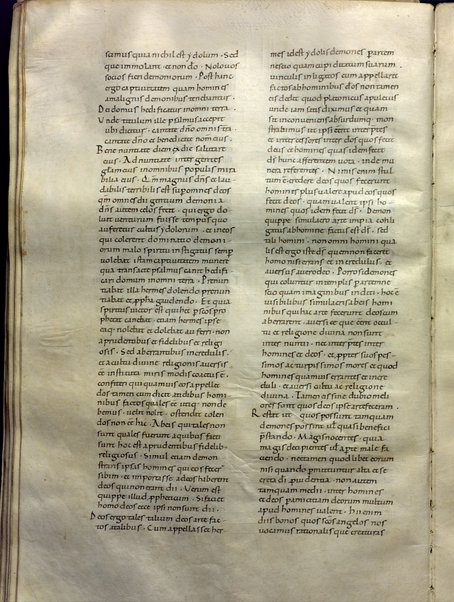 samus quia nichil est ydolum. Sed
que immolant. et non do. Nolo uos
socios fieri demoniorum. Post hanc
ergo captiuitatem qua homines
a malignis demonibus tenebantur.
Dei domus hedificatur in omni terra.
Unde titulum ille psalmus accepit
ubi dicitur. cantate dño omnis terra
cantate dño et benedicite nomen eius.
Bene nuntiate diem ex die salutare
eius. Adnuntiate inter gentes
gloriam eius in omnibus populis mira
bilia eius. Qm magnus dñs et lau
dabilis terribilis est super omnes deos
qm omnes dii gentium demonia.
dñs autem celos fecit. qui ergo do
luit uenturum fuisse tempus quo
auferretur cultus ydolorum. et in eos
qui colerent dominatio demoni
orum malo spiritu instigatus semp
uolebat istam captiuitatem manere
qua transacta psalmus canit hedifi
cari domum in omni terra. Prenun
tiabat illa hermes dolendo prenun
tiabat et appha gaudendo. Et quia
spiritus uictor est qui hec per scos pro
phetas canebat. etiam hermes ipse
ea que nolebat et dolebat auferri. non
a prudentibus et fidelibus et religi
osis. Sed aberrantibus incredulis.
et a cultu diuine religionis auersis.
ee instituta miris modis coactus e
confiteri qui quamuis eos appellet
deos tamen cum dicit a talibus homi
nibus factos quales ee utique non de
bemus. uelit nolit. ostendit colen
dos non ee hic. Ab eis qui tales non
sunt quales fuerunt a quibus facti
sunt hoc est a prudentibus fidelib;
religiosis. Simul etiam demon
strans ipsos homines qui eos fecer
sibim. et importasse ad eos haberent
deos qui non erant dii. Verum est
quippe illud ppheticum. Si faciet
homo deos ecce ipsi non sunt dii.
Deos ergo tales talium deos arte fac
tos a talibus. Cum appellasset her
mes id est ydolis demones per artem
nescio quam cupiditatum suarum
uinculis inligatos cum appellaret
factos ab hominibus deos non tamen
eis dedit quod platonicus apuleius
unde iam satis diximus et quam
sit inconueniens absurdumq; mon
strauimus ut ipsi eent interptes
et intercessores inter deos quos fecit
deus et homines quos idem fecit
ds hinc afferentes uota. inde mu
nera referentes. Nimis enim stul
tum e. credere deos quos fecerunt
homines plus ualere apud deos quos
fecit deus. quam ualent ipsi ho
mines quos idem fecit ds. Demon
quippe simulacro arte impia colli
gatus ab homine factus est ds. sed
tali homini. non omni homini qua
lis est ergo iste ds quem non faceret
homo nisi errans et incredulus. et
auersus a uero deo. Porro si demones
qui coluntur in templis per artem ne
scio quam imaginibus inditi. hoc e
uisibilibus simulacris ab eis homi
nibus qui hac arte fecerunt deos cum
aberrarent. auersi eent a cultu
et religione diuina non sunt
inter nuntii. nec interptes inter
homines et deos. et ppter suos pes
simos ac turpissimos mores et quod
homines quamuis errantes et incre
duli. et auersi a cultu ac religione
diuina. Tamen eis sine dubio meli
ores sunt quos deos ipsi arte fecerunt.
Restat ut quos possunt tamquam
demones possint uel quasi beneficia
pstando. Magis nocentes. quia
magis decipientes uel apte male fa
ciendo. nec tamen quod libet eorum
nisi quando pmittuntur alta et se
creta di. puidentia non autem
tamquam medii. inter homines
et deos p amicitiam deorum multum
apud homines ualent. Hi enim
diis bonis quos scos angelos nos
uocamus rationalesque creaturas